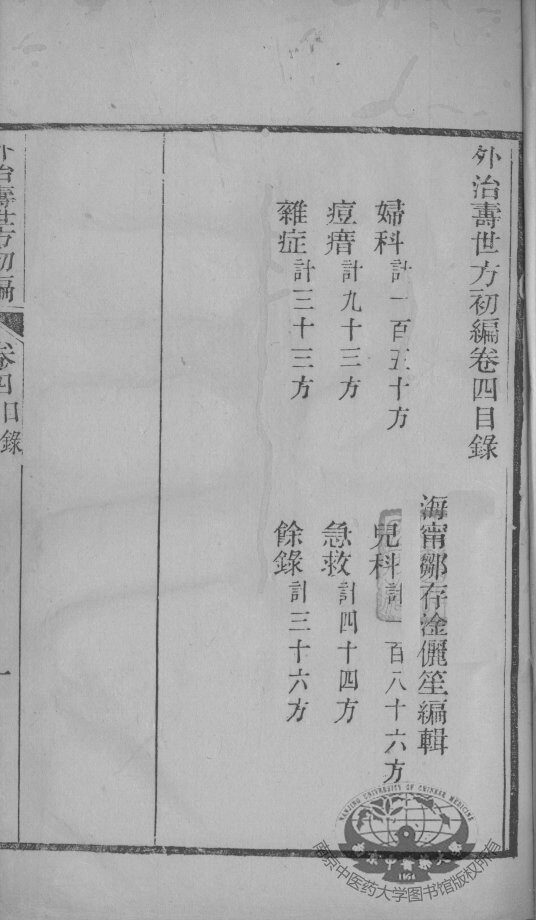 外治壽世方初編卷四目錄
海甯鄒存淦儷笙編輯
婦科計一百五十方
兒科計一百八十六方
痘瘄計九十三方
急救計四十四方
雜症計三十三方
餘錄計三十六方
外治壽世方初編
卷四目錄
一
NANJING UNIVERSITY OF CHINESE MEDICINE
南京中医药大学图书馆版权所有